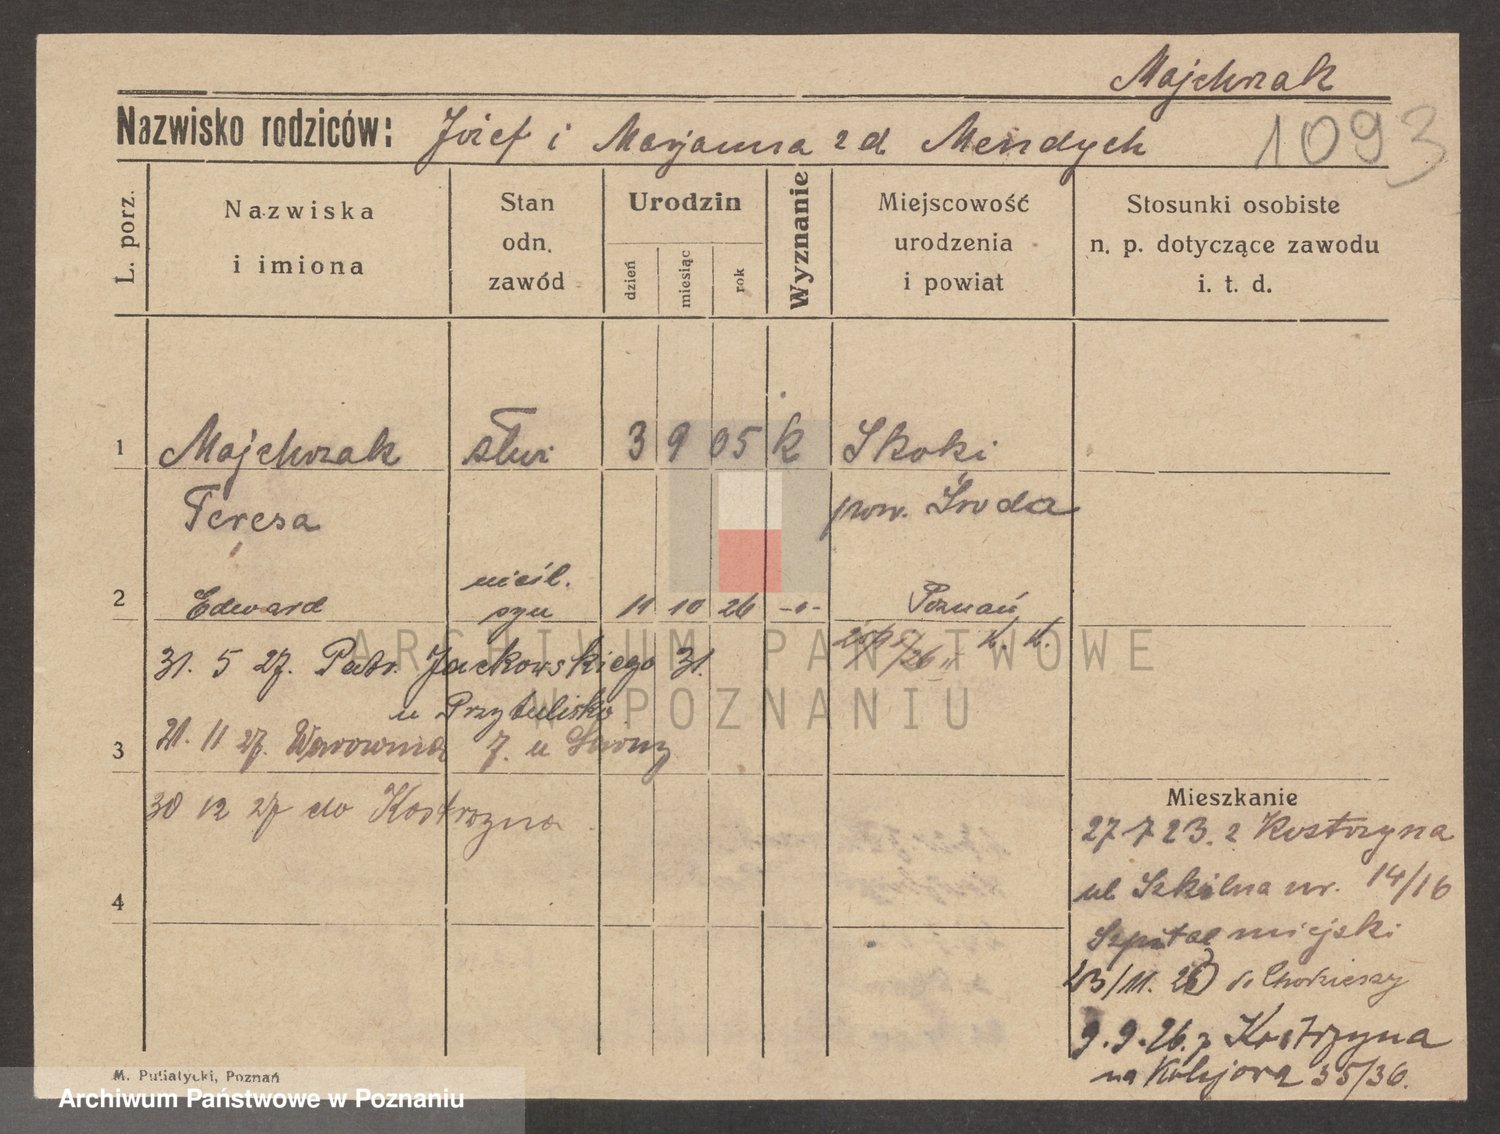 Majchrzak
Nazwisko rodziców: Józef i Marjanna z d Mendych
1093
L. porz.
Nazwiska
i imiona
Stan
odn.
zawód
Urodzin
dzień
miesiąc
rok
Wyznanie
Miejscowość
urodzenia
i powiat
Stosunki osobiste
n. p. dotyczące zawodu
i. t. d.
1 Majchrzak służ 3 9 05 k Skoki
Teresa pow. Środa
nieśl.
2 Edward syn 11 10 26 -"- Poznań
31. 5 27. Patr. Jackowskiego 31.
u Przytulisko
3 21. 11 27. Warownia 7. u
30 12 27 do Kostrzyna
4
Mieszkanie
27 7 23. z Kostrzyna
ul Szkólna nr. 14/16
Szpital miejski
23/11. 25 do
9. 9. 26. z Kostrzyna
na 35/36.
M. Putiatycki, Poznań
ARCHIWUM PAŃSTWOWE
W POZNANIU
Archiwum Państwowe w Poznaniu